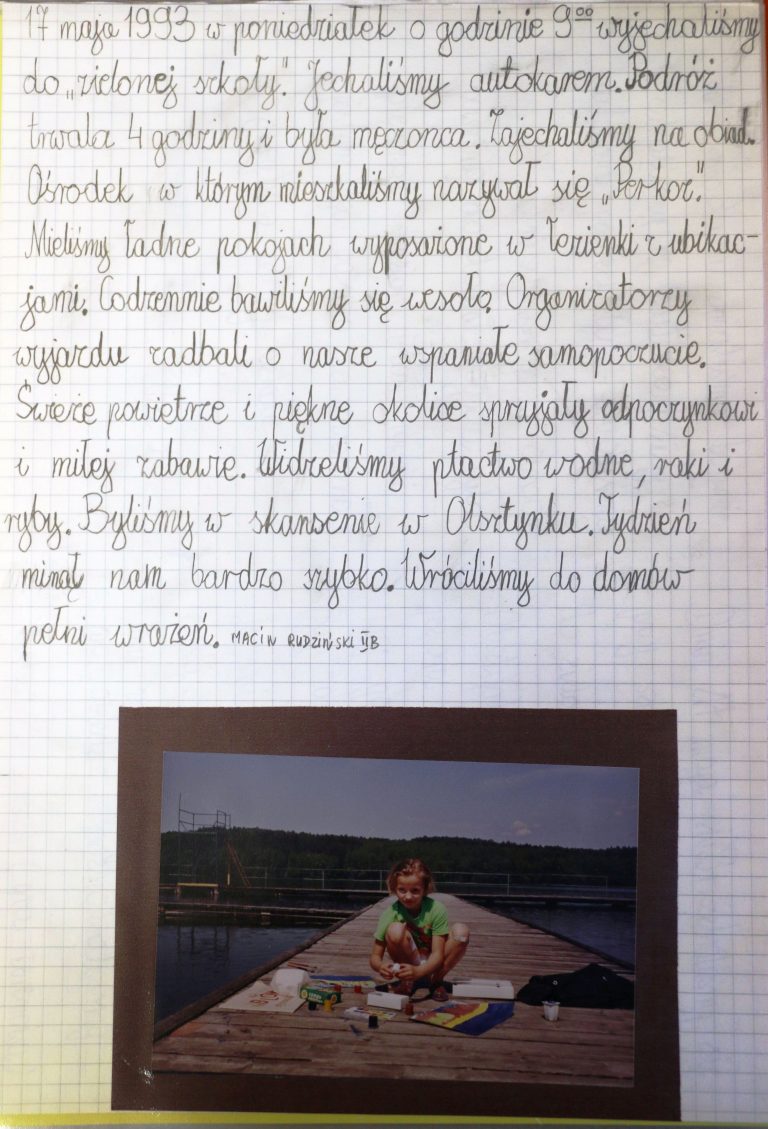 17 maja 1993 w poniedziałek o godzinie 9⁰⁰ wyjechaliśmy
do „zielonej szkoły". Jechaliśmy autokarem. Podróż
trwała 4 godziny i była męczonca. Zajechaliśmy na obiad.
Ośrodek w którym mieszkaliśmy nazywał się „Perkoz".
Mieliśmy ładne pokojach wyposażone w łezienki z ubikac-
jami. Codzennie bawiliśmy się wesoło. Organizatorzy
wyjazdu zadbali o nasze wspaniałe samopoczucie.
Śweże powietrze i piękne okolice sprzyjały odpoczynkowi
i miłej zabawie. Widzeliśmy ptactwo wodne, raki i
ryby. Byliśmy w skansenie w Olsztynku. Tydzień
minął nam bardzo szybko. Wróciliśmy do domów
pełni wrażeń. MACIN RUDZIŃSKI IIB